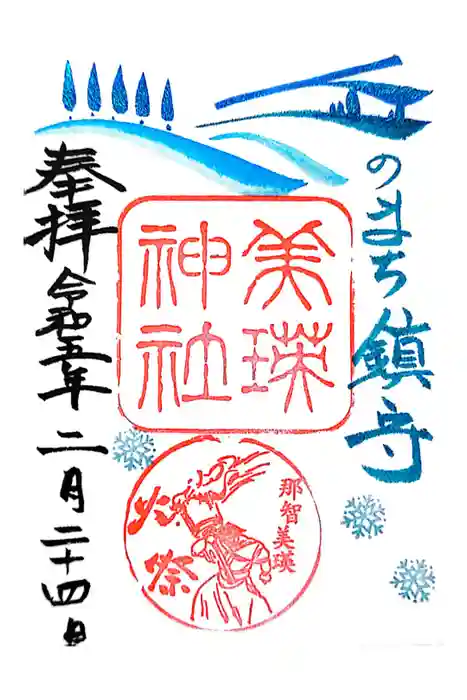 丘のまち鎮守
美瑛
神社
那智美瑛
火祭
奉拝 令和五年 二月二十四日